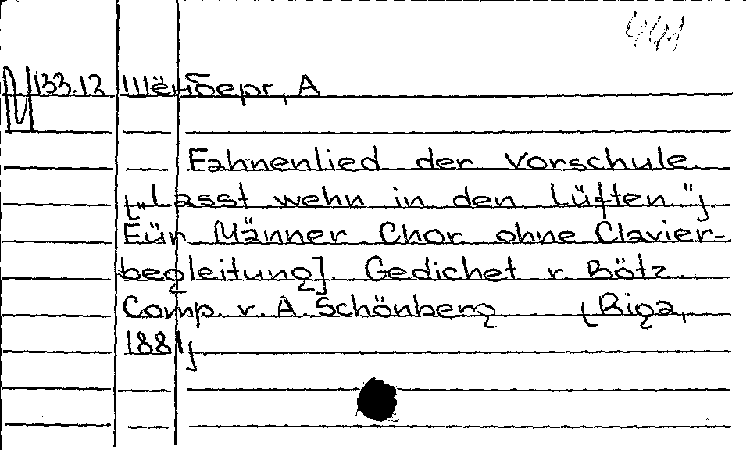 441
133.12 Шёнберг, А
Fahnenlied der Vorschule
[„Lasst wehn in den Lüften"]
Für Männer Chor ohne Clavier-
begleitung]. Gedichet v. Bötz.
Comp. v. A. Schönberg [Riga,
1881]